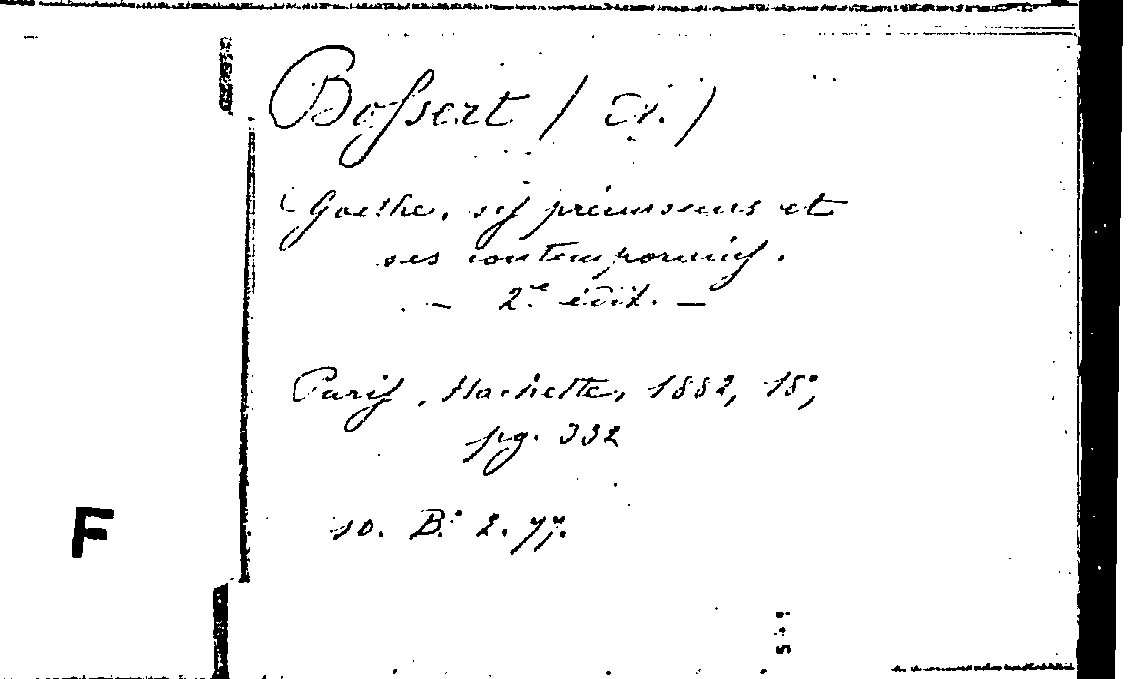 Bossert (A.)
Goethe, ses précurseurs et
ses contemporains.
— 2.e édit. —
Paris, Hachette, 1882, 18°,
pg. 332
10. B.a 2. 77.
F